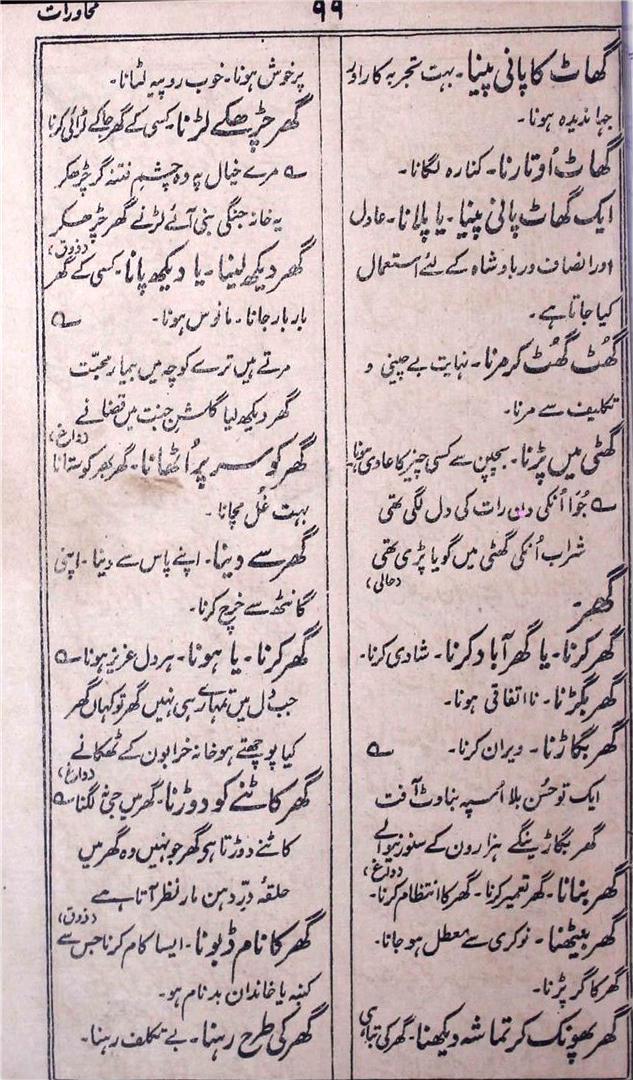 محاورات
۹۹
گھاٹ کا پانی پینا۔ بہت تجربہ کار اور
جہاندیدہ ہونا۔
گھاٹ اُوتارنا۔ کنارہ لگانا۔
ایک گھاٹ پانی پینا۔ یا پلانا۔ عادل
اور انصاف ور بادشاہ کے لئے استعمال
کیا جاتا ہے۔
گھُٹ گھُٹ کر مرنا۔ نہایت بے چینی و
تکلیف سے مرنا۔
گھٹی میں پڑنا۔ بچپن سے کسی چیز کا عادی ہونا
؎ جُوا اُنکی دن رات کی دل لگی تھی
شراب اُنکی گھٹی میں گویا پڑی تھی
(حالی)
گھر۔
گھر کرنا۔ یا گھر آباد کرنا۔ شادی کرنا۔
گھر بگڑنا۔ نااتفاقی ہونا۔
گھر بگاڑنا۔ ویران کرنا۔ ؎
ایک تو حُسن بلا اُسپہ بناوٹ آفت
گھر بگاڑینگے ہزارون کے سنورنیوالے
(داغ)
گھر بنانا۔ گھر تعمیر کرنا۔ گھر کا انتظام کرنا۔
گھر بیٹھنا۔ نوکری سے معطل ہو جانا۔
گھر کا گر پڑنا۔
گھر پھونک کر تماشہ دیکھنا۔ گھر کی تباہی
پر خوش ہونا۔ خوب روپیہ لٹانا۔
گھر چڑھکے لڑنا۔ کسی کے گھر جاکے لڑائی کرنا
؎ مرے خیال پہ وہ چشم فتنہ گر چڑھکر
یہ خانہ جنگی بنی آئے لڑنے گھر چڑھکر
(ذوق)
گھر دیکھ لینا۔ یا دیکھ پانا۔ کسی کے گھر
بار بار جانا۔ مانوس ہونا۔ ؎
مرتے ہیں ترے کوچہ میں بیمار محبّت
گھر دیکھ لیا گلشن جنت میں قضا نے
(داغ)
گھر کو سر پر اُٹھانا۔ گھر بھر کو ستانا
بہت غُل مچانا۔
گھر سے دینا۔ اپنے پاس سے دینا۔ اپنی
گانٹھ سے خرچ کرنا۔
گھر کرنا۔ یا ہونا۔ ہر دل عزیز ہونا۔ ؎
جب دل میں تمہارے ہی نہیں گھر تو کہاں گھر
کیا پوچھتے ہو خانہ خرابون کے ٹھکانے
(داغ)
گھر کاٹنے کو دوڑنا۔ گھر میں جی نہ لگنا ؎
کاٹنے دوڑتا ہی گھر جو نہیں وہ گھر میں
حلقۂ در دہن مار نظر آتا ہے
(ذوق)
گھر کا نام ڈبونا۔ ایسا کام کرنا جس سے
کنبہ یا خاندان بدنام ہو۔
گھر کی طرح رہنا۔ بے تکلف رہنا۔